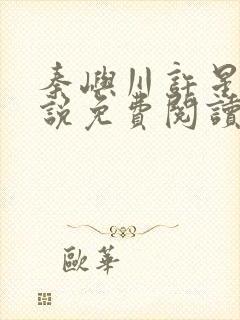 秦嶼川許星
說免費閱讀
歐華